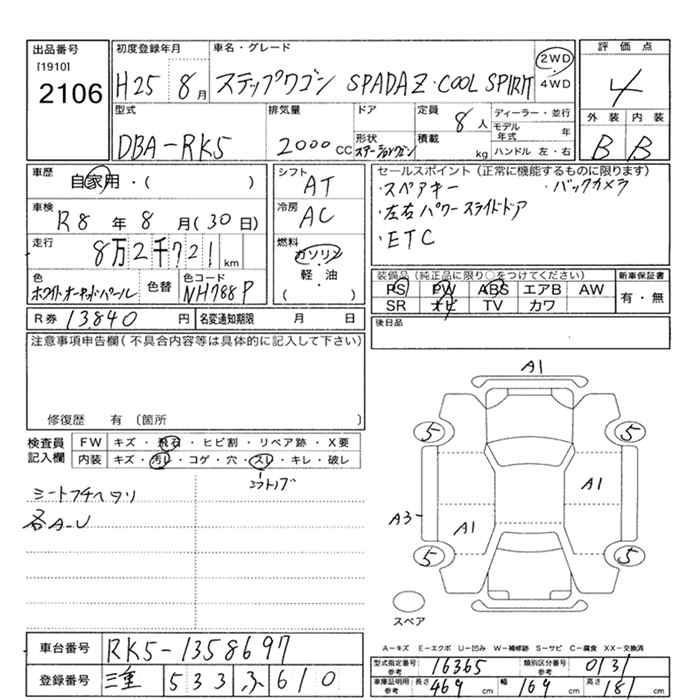 出品番号
[1910]
2106
初度登録年月
H25 8月
車名・グレード
ステップワゴン SPADA Z・COOL SPIRIT
2WD
4WD
評価点
4
外装 内装
B B
型式
DBA-RK5
排気量
2000 CC
ドア
形状
ステーションワゴン
定員
8人
積載
kg
ディーラー・並行
モデル年式 年
ハンドル 左・右
車歴
自家用・( )
車検
R8年8月(30日)
走行
8万2千721km
色
ホワイトオーキッドパール
色替
色コード
NH788P
シフト
AT
冷房
AC
燃料
ガソリン
軽・油
( )
セールスポイント(正常に機能するものに限ります)
・スペアキー ・バックカメラ
・左右パワースライドドア
・ETC
装備品(純正品に限り○をつけてください)
PS PW ABS エアB AW
SR ナビ TV カワ
新車保証書
有・無
R券 13840円
名変通知期限 月 日
後日品
注意事項申告欄(不具合内容等は具体的に記入して下さい)
修復歴 有 (箇所 )
検査員
記入欄
FW キズ・飛石・ヒビ割・リペア跡・X要
内装 キズ・汚レ・コゲ・穴・スレ・キレ・破レ
シフトノブ
シートフチヘタリ
各A-U
A1
5 5
A1
A3
A1
5 5
スペア
A-キズ E-エクボ U-凹み W-補修跡 S-サビ C-腐食 XX-交換済
車台番号 RK5-1358697
登録番号 三重 533 ふ 610
型式指定番号 参考 16365
類別区分番号 参考 0131
車庫証明用 参考 長さ 469 cm 幅 169 cm 高さ 181 cm